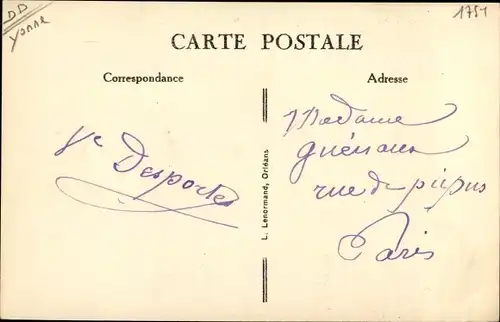 DD
Yonne
1751
CARTE POSTALE
Correspondance
Adresse
Ve Desportes
L. Lenormand, Orléans
Madame
rue de picpus
Paris